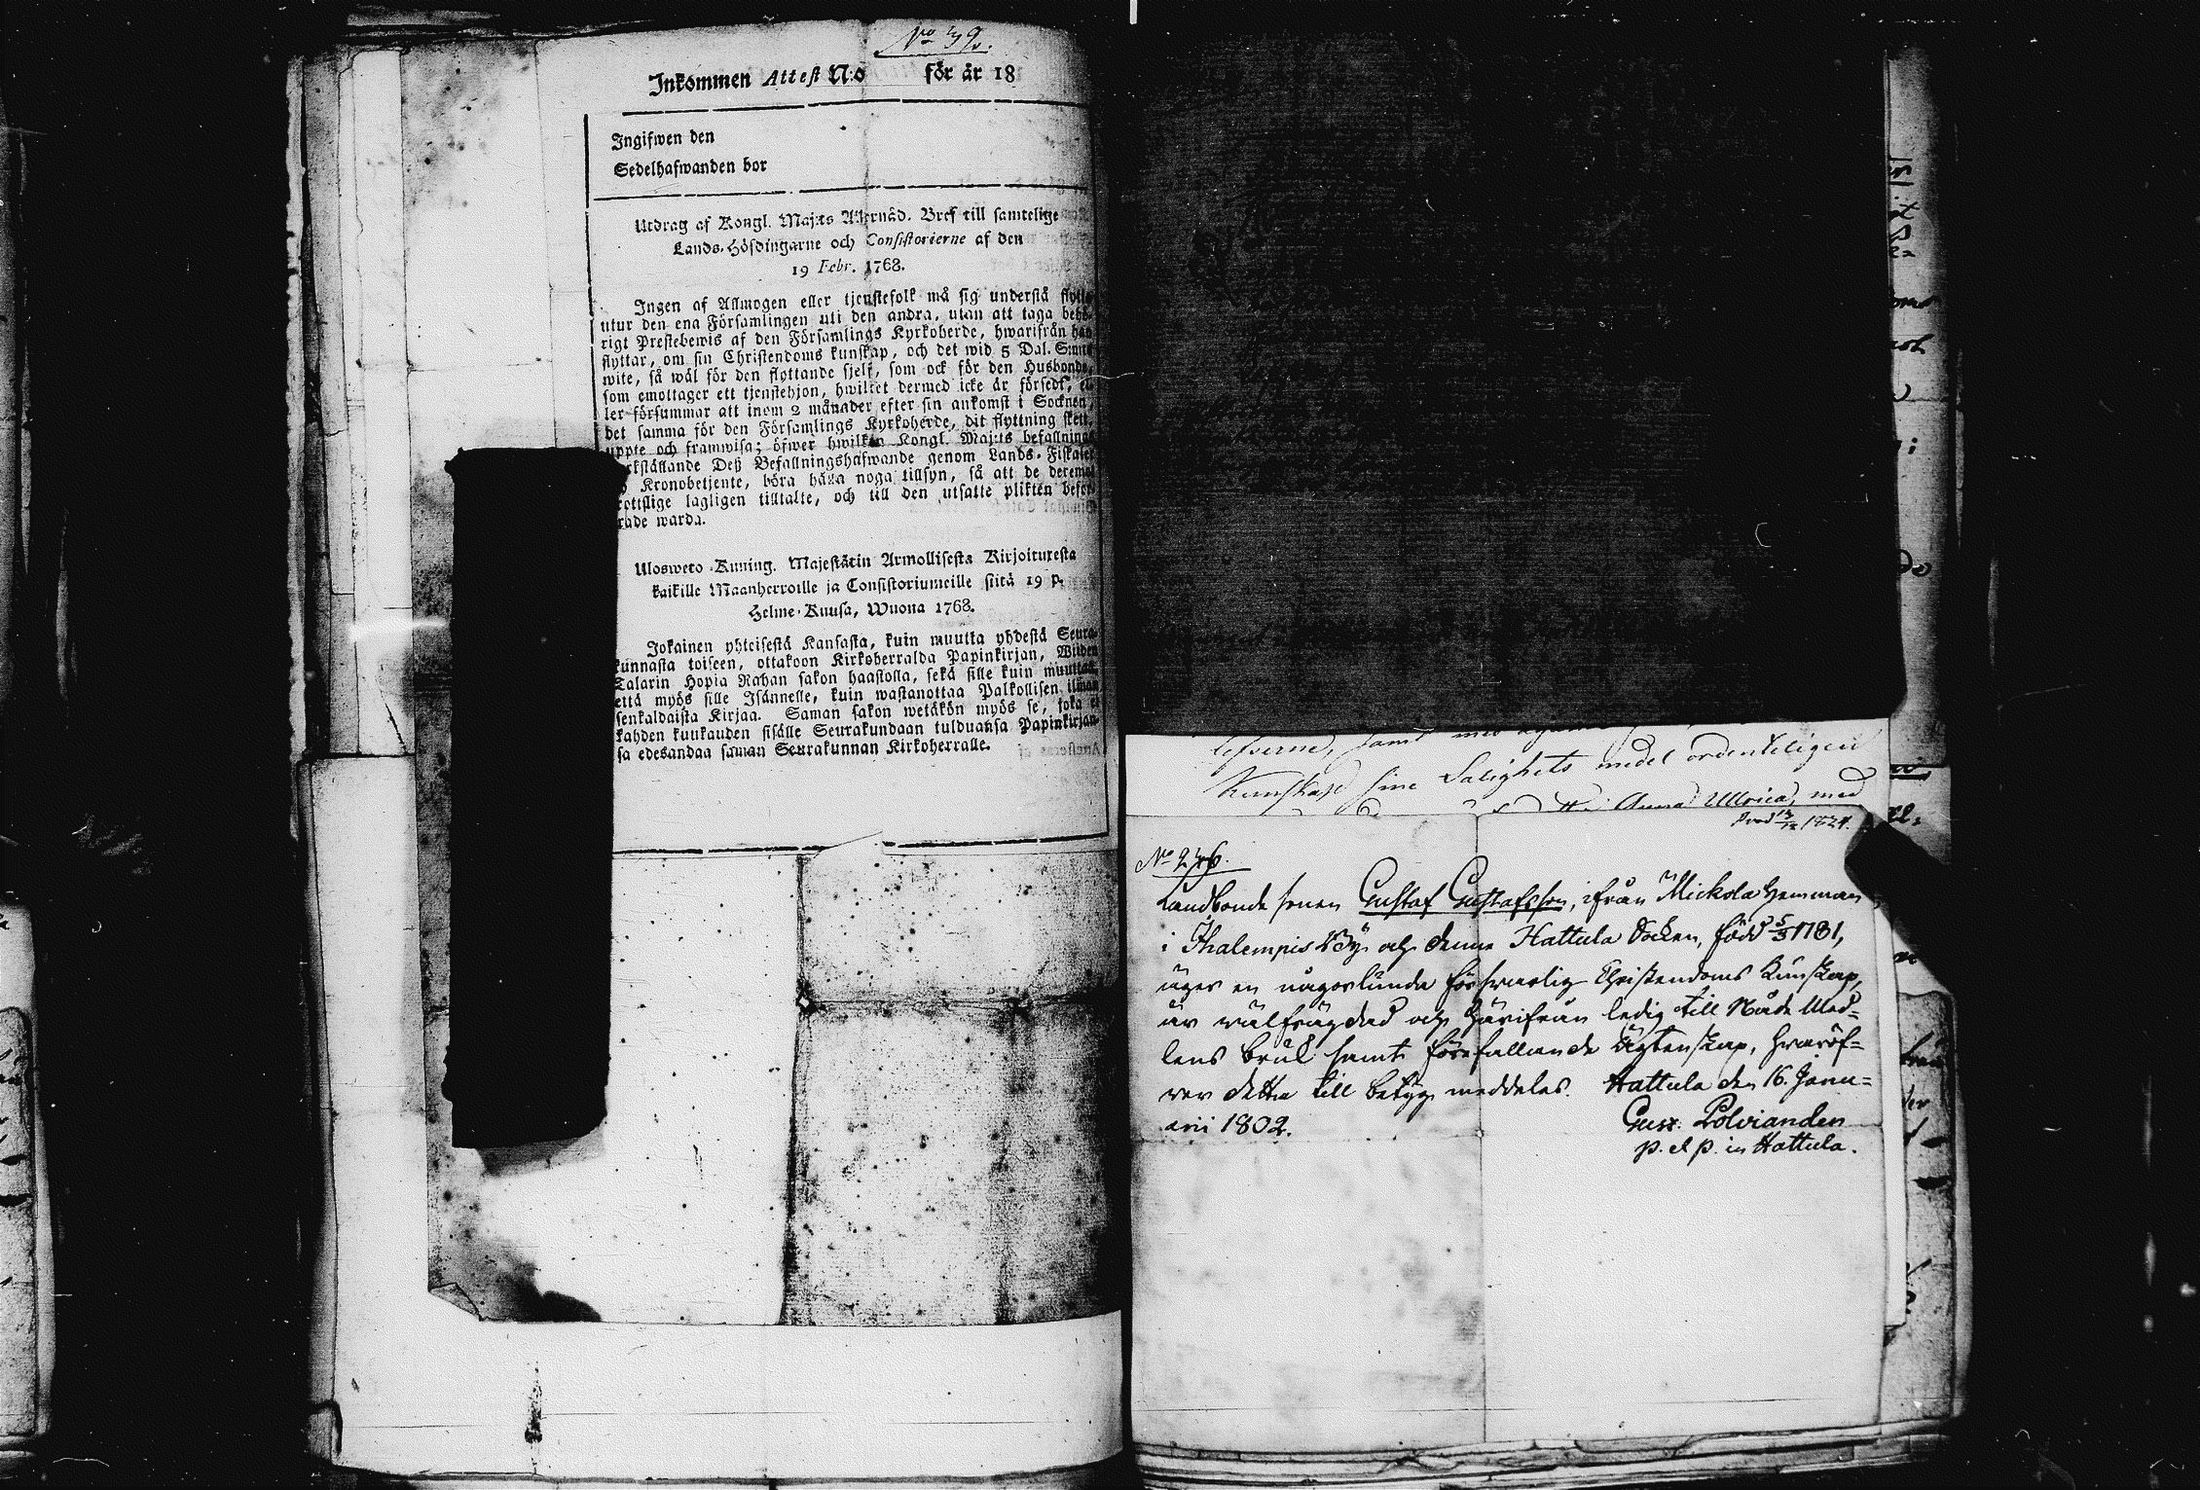 No 39.
Inkommen Attest N:o för år 18
Ingifwen den
Sedelhafwanden bor
Utdrag af Kongl. Maj:ts Allernåd. Bref till samtelige
Lands-Höfdingarne och Consistorierne af den
19 Febr. 1768.
Ingen af Allmogen eller tjenstefolk må sig understå flytta
utur den ena Församlingen uti den andra, utan att taga behö-
rigt Prestebewis af den Församlings Kyrkoherde, hwarifrån han
flyttar, om sin Christendoms kunskap, och det wid 5 Dal. Smts
wite, så wäl för den flyttande sjelf, som ock för den Husbonde,
som emottager ett tjenstehjon, hwilket dermed icke är försedt, el-
ler försummar att inom 2 månader efter sin ankomst i Socknen,
det samma för den Församlings Kyrkoherde, dit flyttning skett,
uppte och framwisa; öfwer hwilken Kongl. Maj:ts befallnings
werkställande Deß Befallningshafwande genom Lands-Fiskaler
Kronobetjente, böra hålla noga tillsyn, så att de deremot
brottslige lagligen tilltalte, och till den utsatte plikten befor-
drade warda.
Ulosweto Kuning. Majestätin Armollisesta Kirjoituresta
kaikille Maanherroille ja Consistoriumeille siitä 19 p.
Helme-Kuusa, Wuona 1768.
Jokainen yhteisestä Kansasta, kuin muutta yhdestä Seura-
kunnasta toiseen, ottakoon Kirkoherralda Papinkirjan, Wiiden
Talarin Hopia Rahan sakon haastolla, sekä sille kuin muuttaa,
että myös sille Isännelle, kuin wastanottaa Palkollisen ilman
senkaldaista Kirjaa. Saman sakon wetäkön myös se, joka ei
kahden kuukauden sisälle Seurakundaan tulduansa Papinkirjan-
sa edesandaa saman Seurakunnan Kirkoherralle.
Kunskap sine Salighets medel ordenteligen
Anna Ullrica, med
1824.
No 246.
Landbonde sonen Gustaf Gustafsson, ifrån Mickola hemman
i Ihalempis By och denne Hattula Socken, född 5/3 1781,
äger en någorlunda försvarlig Christendoms Kunskap,
är wälfrägdad och härifrån ledig till Nåde Med-
lens bruk samt förefallande Ägtenskap, hwaröf-
wer detta till betyg meddelas. Hattula den 16. Janu-
arii 1802.
Gust. Polviander
p. et p. in Hattula.